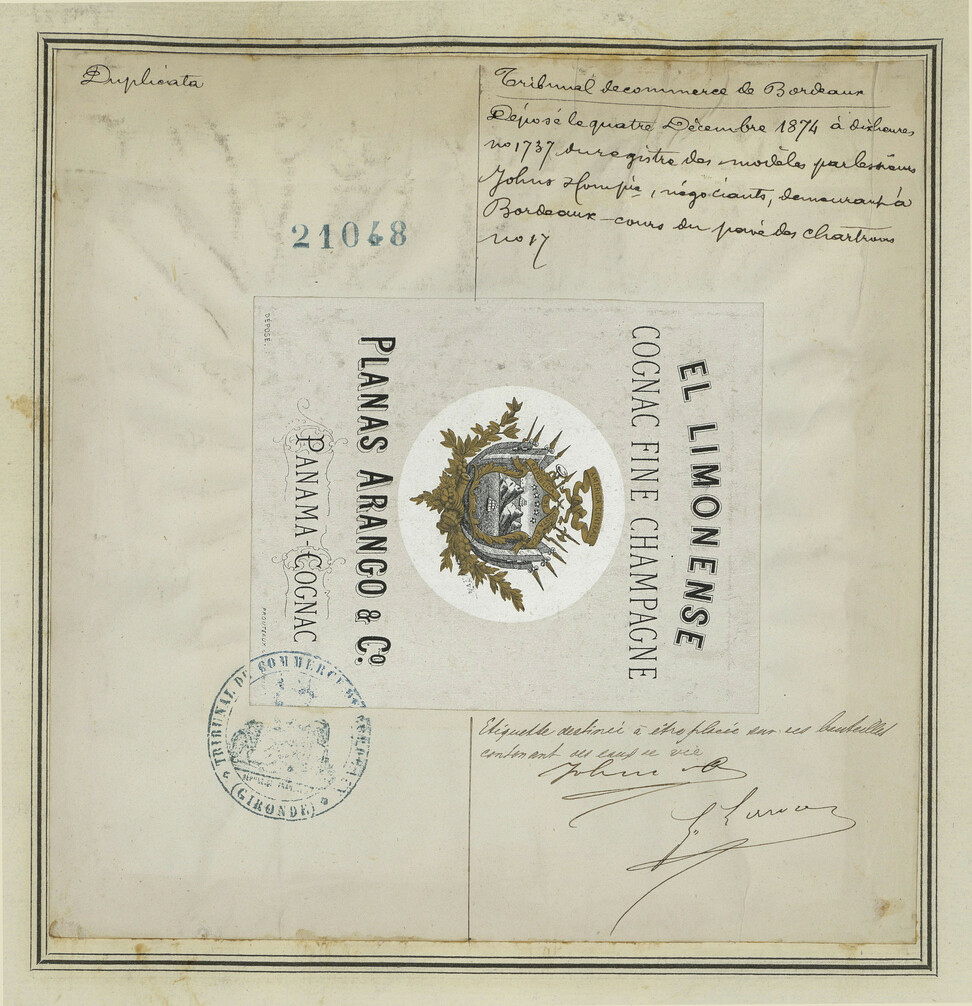 Duplicata
Tribunal de commerce de Bordeaux
Déposé le quatre Décembre 1874 à dix heures
no 1737 du registre des modèles par les sieurs
Johns, négociants, demeurant à
Bordeaux cours du pavé des chartrons
no 17
21048
DÉPOSÉ.
EL LIMONENSE
COGNAC FINE CHAMPAGNE
PLANAS ARANGO & Co.
PANAMA-COGNAC
TRIBUNAL DE COMMERCE DE BORDEAUX
(GIRONDE)
Etiquette destinée à être placée sur les bouteilles
contenant des eaux de vie